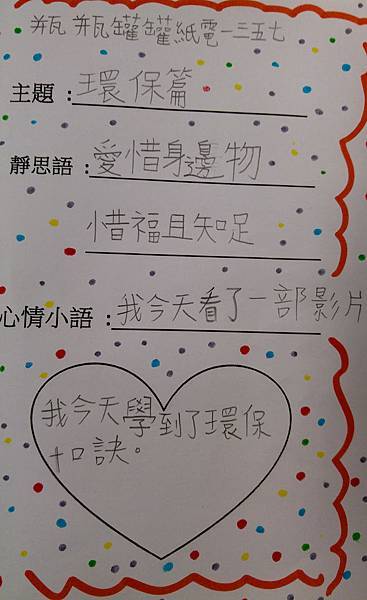 瓶瓶罐罐紙電一三五七
主題：環保篇
靜思語：愛惜身邊物
惜福且知足
心情小語：我今天看了一部影片
我今天學到了環保
十口訣。